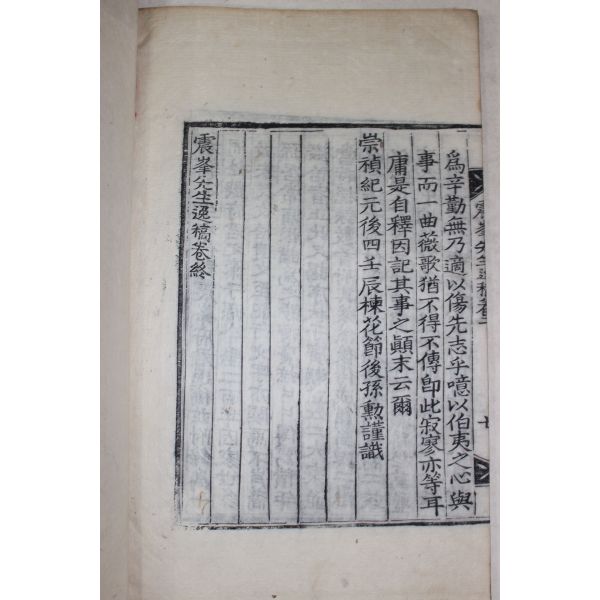 震峯先生逸稿卷一
七
爲辛勤無乃適以傷先志乎噫以伯夷之心與
事而一曲薇歌猶不得不傳卽此寂寥亦等耳
庸是自釋因記其事之顚末云爾
崇禎紀元後四壬辰楝花節後孫勲謹識
震峯先生逸稿卷終